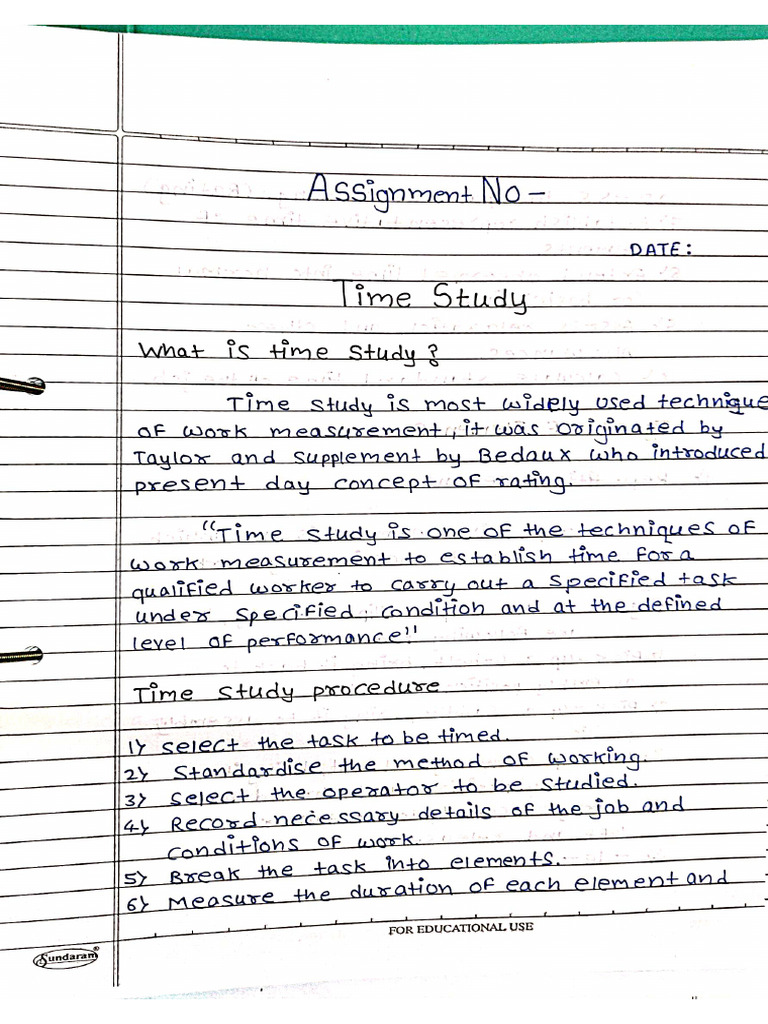 Assignment No -
DATE:
Time Study
What is time study?
Time study is most widely used technique
of work measurement, it was originated by
Taylor and supplement by Bedaux who introduced
present day concept of rating.
"Time study is one of the techniques of
work measurement to establish time for a
qualified worker to carry out a specified task
under specified, condition and at the defined
level of performance"
Time study procedure
1) Select the task to be timed.
2) Standardise the method of working.
3) Select the operator to be studied.
4) Record necessary details of the job and
conditions of work.
5) Break the task into elements.
6) Measure the duration of each element and
FOR EDUCATIONAL USE
Sundaram®